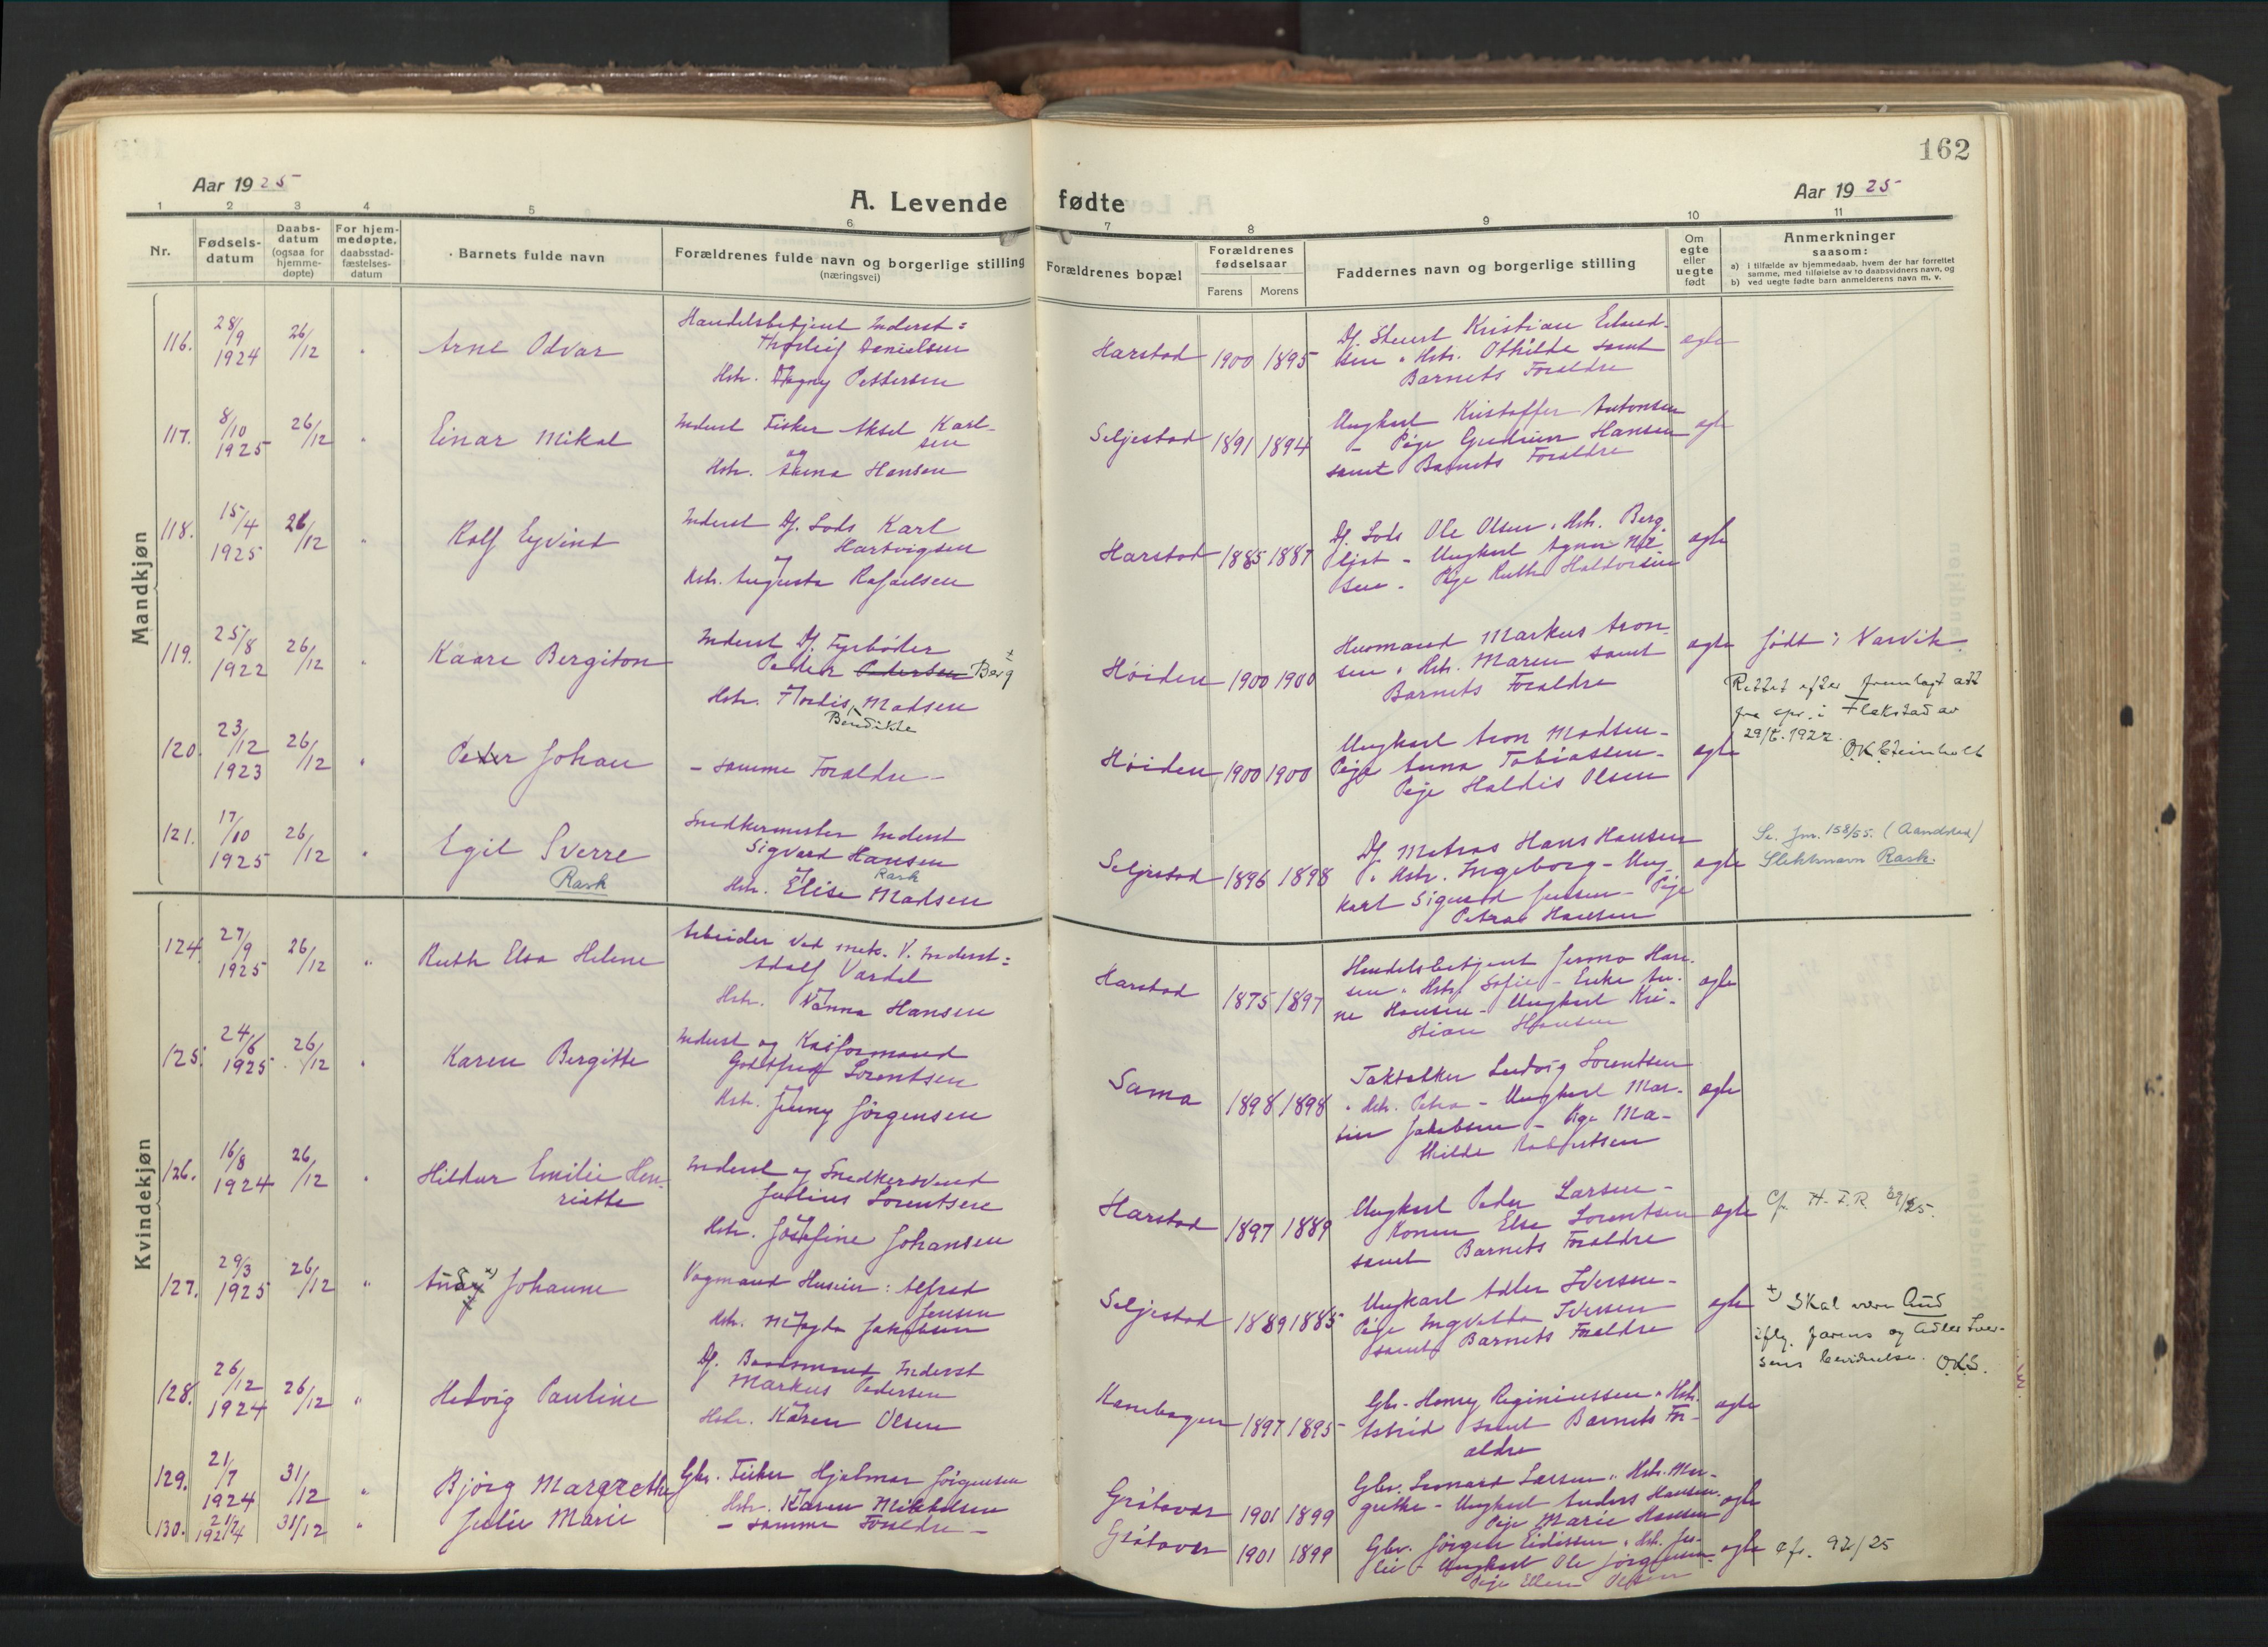 162
Aar 1925
A. Levende fødte
Aar 1925
1 2 3 4 5 6 7 8 9 10 11
Nr.
Fødselsdatum
Daabsdatum (ogsaa for hjemmedøpte)
For hjemmedøpte, daabsstadfæstelsesdatum
Barnets fulde navn
Forældrenes fulde navn og borgerlige stilling
(næringsvei)
Forældrenes bopæl
Forældrenes fødselsaar
Farens Morens
Faddernes navn og borgerlige stilling
Om egte eller uegte født
Anmerkninger
saasom:
a) i tilfælde av hjemmedaab, hvem der har forrettet
samme, med tilføielse av to daabsvidners navn, og
b) ved uegte fødte barn anmelderens navn m. v.
Mandkjøn
116. 28/9 1924 26/12 " Arne Odvar
Handelsbetjent Inderst:
Thorleif Danielsen
Hstr. Dagny Pettersen
Harstad 1900 1895
Kristian
sen o Hstr. Othilde samt
Barnets Foraldre
egte
117. 8/10 1925 26/12 " Einar Mikal
Inderst Fisker Aksel Karl-
sen
og
Hstr. Anna Hansen
Seljestad 1891 1894
Ungkarl Kristoffer Antonsen
- Pige Gudrun Hansen
samt Barnets Foraldre
egte
118. 15/4 1925 26/12 " Rolf Eyvind
Inderst Df. Lods Karl
Hartvigsen
og
Hstr. Augusta Rafaelsen
Harstad 1885 1887
Df. Lods Ole Olsen o Hstr. Berg-
ljot - Ungkarl Agnar Nil-
sen - Pige Ruth Haldorsen
egte
119. 25/8 1922 26/12 " Kaare Bergiton
Inderst Df. Fyrbøder
Peder Pedersen Berg
Hstr. Flordis Madsen
Bendikte
Høiden 1900 1900
Husmand Markus Aron-
sen o Hstr. Maren samt
Barnets Foraldre
egte
født i Narvik.
Rettet efter fremlagt att
fra spr. i Flakstad av
29/8.1922.
O.K.Steinholt
120. 23/12 1923 26/12 " Peter Johan
- samme Foraldre -
Høiden 1900 1900
Ungkarl Aron Madsen -
Pige Anna Tobiassen -
Pige Haldis Olsen
egte
121. 17/10 1925 26/12 " Egil Sverre
Rask
Snedkermester Inderst
Sigvard Hansen
Rask
Hstr. Elise Madsen
Seljestad 1896 1898
Df. Matros Hans Hansen
o Hstr. Ingeborg - Ung-
karl Sigurd Jensen - Pige
Petra Hansen
egte
Se. Jnr. 158/55. (Aandstad)
Slektsnavn Rask.
Kvindekjøn
124. 27/9 1925 26/12 " Ruth Elsa Helene
Arbeider ved mek. V. Inderst:
Adolf Vardal
Hstr. Nanna Hansen
Harstad 1875 1897
Handelsbetjent Jermo Han-
sen o Hstr. Sofie - Enke An-
ne Hansen - Ungkarl Kri-
stian Hansen
egte
125. 24/6 1925 26/12 " Karen Bergitte
Inderst og Kaiformand
Godtfred Lorentsen
Hstr. Jenny Jørgensen
Sama 1898 1898
Taksatker Ludvig Lorentsen
o Hstr. Petra - Ungkarl Mar-
tin Jakobsen - Pige Ma-
thilde Robertsen
egte
126. 16/8 1924 26/12 " Hildur Emilie Hen-
riette
Inderst og Snedkersvend
Julius Lorentsen
Hstr. Josefine Johansen
Harstad 1897 1889
Ungkarl Peder Larsen -
Konen Elsa Lorentsen
samt Barnets Foraldre
egte
Cfr. H.I.R. 29/25.
127. 29/3 1925 26/12 " Andy Johanne
Vogmand Huseier: Alfred
Jensen
Hstr. Magda Jakobsen
Seljestad 1889 1885
Ungkarl Adler Iversen -
Pige Ingvalda Iversen
samt Barnets Foraldre
egte
Skal være Aud
iflg. farens og Adler Iver-
sens bevidnelse. O.K.S.
128. 26/12 1924 26/12 " Hedvig Pauline
Df. Baadsmand Inderst
Markus Pedersen
Hstr. Karen Olsen
Kanebogen 1897 1895
Gbr. Henry Reginiussen o Hstr.
Astrid samt Barnets For-
aldre
egte
129. 21/7 1924 31/12 " Bjørg Margrethe
Gbr. Fisker Hjalmar Jørgensen
Hstr. Karen Mikkelsen
Grøtavær 1901 1899
Gbr. Leonard Larsen o Hstr. Mar-
grethe - Ungkarl Anders Hansen
Pige Marie Hansen
egte
130. 21/7 1924 31/12 " Julie Marie
- samme Foraldre -
Grøtavær 1901 1899
Gbr. Jørgen Eidissen o Hstr. Ju-
lie - Ungkarl Ole Jørgensen
Pige Ellen Olsen
egte
cfr. 92/25